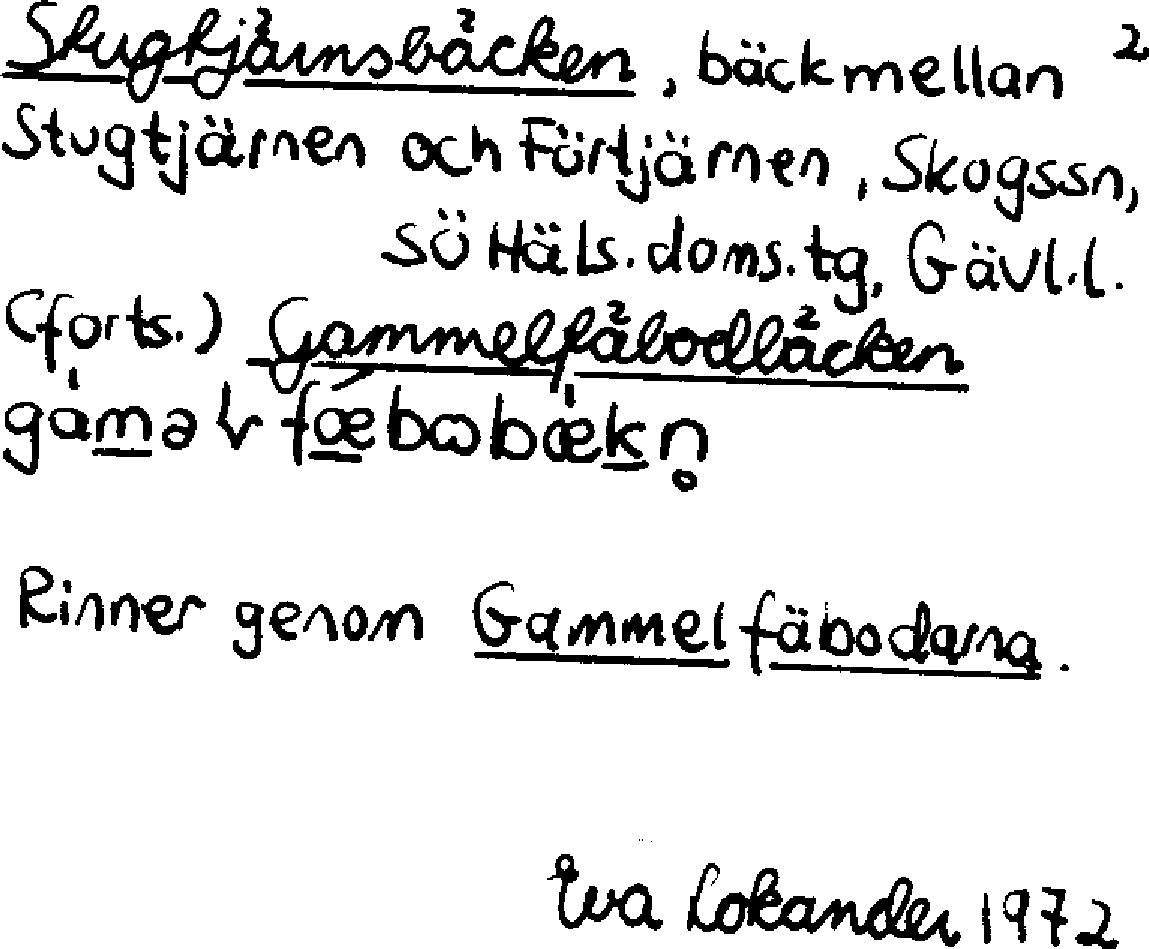 Stugtjärnsbäcken, bäck mellan 2
Stugtjärnen och Förtjärnen, Skogssn,
SÖ Häls. doms. tg, Gävl. l.
(forts.) Gammelfäbodbäcken
Rinner genom Gammelfäbodarna.
Eva Lokander 1972